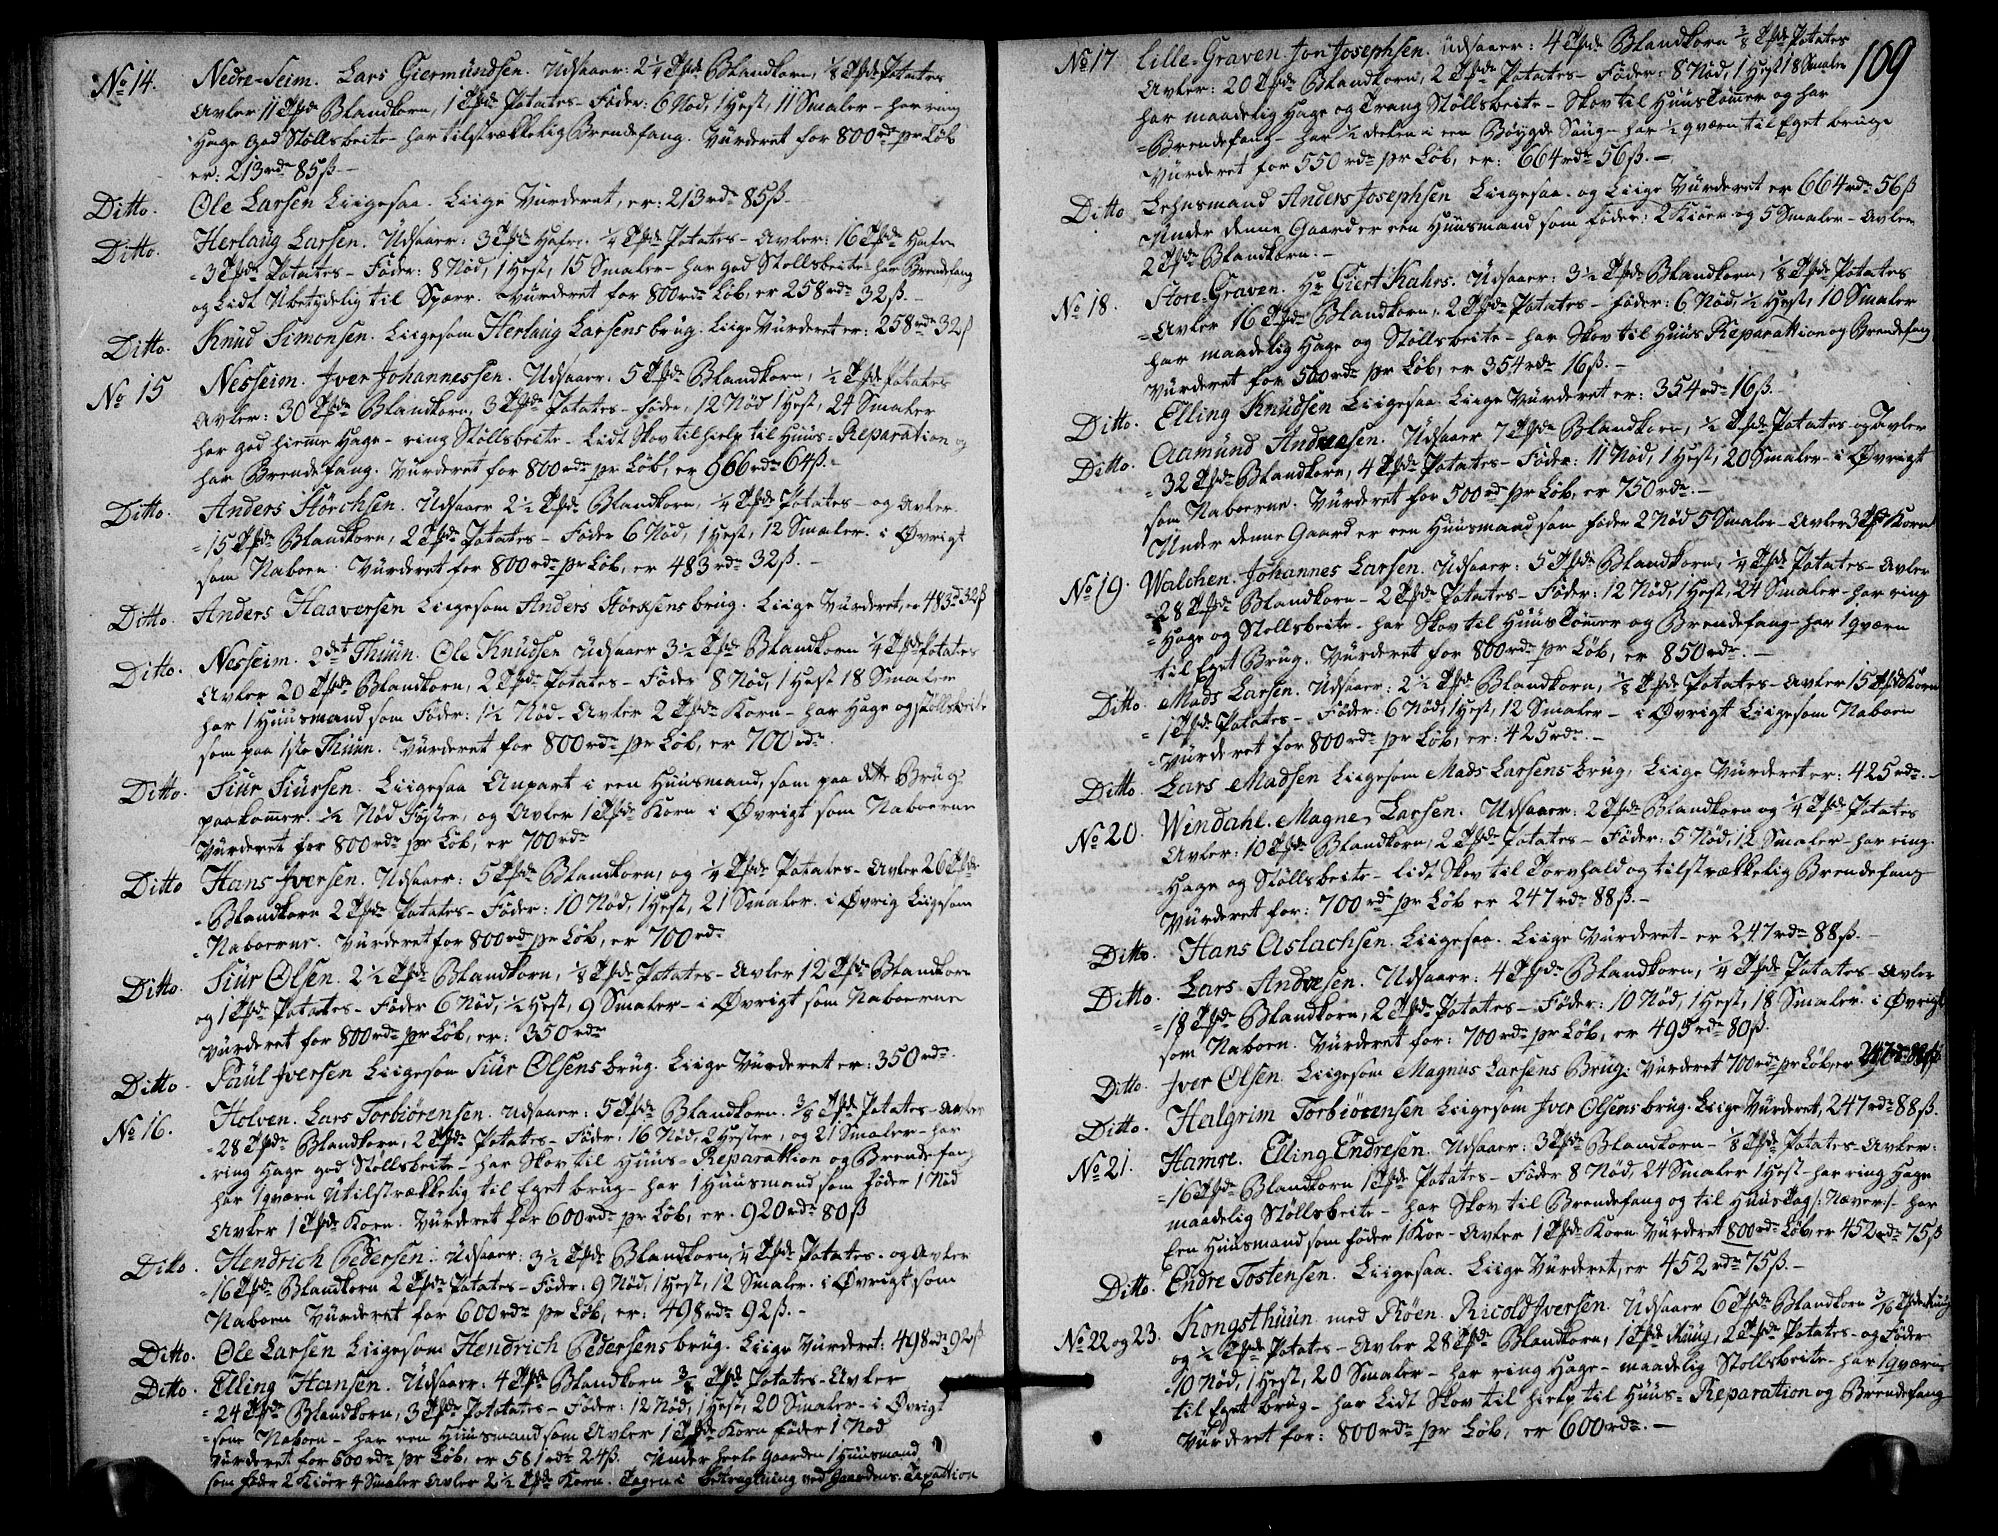 No 14. Nedre-Seim. Lars Giermundsen. Udsaaer: 2 1/4 Tønde Blandkorn, 1/8 Tønde Potates
Avler 11 Tønde Blandkorn, 1 Tønde Potates - Føder: 6 Nød, 1 Hest, 11 Smaler - har ring
Hage god Støllsbeite - har tilstrækkelig Brendefang. Vurderet for 800 rd. pr Løb
er: 213 rd. 85 ß. -
Ditto. Ole Larsen Liigesaa. Liige Vurderet, er: 213 rd. 85 ß. -
Ditto. Herlaug Larsen. Udsaaer: 3 Tønde Hafre, 1/4 Tønde Potates - Avler: 16 Tønde Hafre
= 3 Tønde Potates - Føder: 8 Nød, 1 Hest, 15 Smaler - har god Støllsbeite - har Brendefang
og Lidt Ubetydelig til Spærr. Vurderet for 800 rd. Løb, er 258 rd. 32 ß. -
Ditto. Knud Simonsen. Liigesom Herlaug Larsens brug. Liige Vurderet er: 258 rd. 32 ß
No 15 Nesseim. Iver Johannessen. Udsaaer: 5 Tønde Blandkorn, 1/2 Tønde Potates
Avler: 30 Tønde Blandkorn, 3 Tønde Potates - Føder, 12 Nød 1 Hest, 24 Smaler
har god hieme Hage - ring Støllsbeite - Lidt Skov til hielp til Huus = Reparation og
har Brendefang. Vurderet for 800 rd. pr Løb, er 966 rd. 64 ß. -
Ditto. Anders Størchsen. Udsaaer 2 1/2 Tønde Blandkorn, 1/4 Tønde Potates - og Avler
= 15 Tønde Blandkorn, 2 Tønde Potates - Føder 6 Nød, 1 Hest, 12 Smaler. i Øvrigt
som Naboen. Vurderet for 800 rd. pr Løb, er 483 rd. 32 ß. -
Ditto. Anders Haaversen Liigesom Anders Størksens brug. Liige Vurderet, er 483 rd. 32 ß
Ditto. Nesseim. 2det Thuun. Ole Knudsen Udsaaer 3 1/2 Tønde Blandkorn 1/4 Tønde Potates
Avler 20 Tønde Blandkorn, 2 Tønde Potates - Føder 8 Nød, 1 Hest 18 Smaler
har 1 Huusmand som Føder: 1 1/2 Nød - Avler 2 Tønde Korn - har Hage og Støllsbeite
som paa 1ste Thuun. Vurderet for 800 rd. pr Løb, er 700 rd.
Ditto. Siur Siursen. Liigesaa Anpart i een Huusmand, som paa dette Brug
paakommer. 1/2 Nød Føder, og Avler 1 Tønde Korn i Øvrigt som Naboerne
Vurderet for 800 rd. pr Løb, er 700 rd.
Ditto Hans Iversen. Udsaaer: 5 Tønde Blandkorn, og 1/4 Tønde Potates - Avler 26 Tønde
= Blandkorn 2 Tønde Potates - Føder: 10 Nød, 1 Hest, 21 Smaler. i Øvrig Liigesom
= Naboerne. Vurderet for 800 rd. pr Løb, er 700 rd.
Ditto. Siur Olsen. 2 1/2 Tønde Blandkorn, 1/8 Tønde Potates - Avler 12 Tønde Blandkorn
og 1 Tønde Potates - Føder 6 Nød, 1/2 Hest, 9 Smaler - i Øvrigt som Naboerne
Vurderet for 800 rd. pr Løb, er: 350 rd.
Ditto. Paul Iversen Liigesom Siur Olsens brug. Liige Vurderet er: 350 rd.
No 16. Holven. Lars Torbiørensen. Udsaaer: 5 Tønde Blandkorn. 3/8 Tønde Potates - Avler
= 28 Tønde Blandkorn, 2 Tønde Potates - Føder: 16 Nød, 2 Hester, og 21 Smaler - har
ring Hage god Støllsbeite - har Skov til Huus = Reparattion og Brendefang
har 1 qværn Utilstrækkelig til Eget brug - har 1 Huusmand som føder 1 Nød
Avler 1 Tønde Korn. Vurderet for 600 rd. pr Løb, er. 920 rd. 80 ß
Ditto. Hendrich Pedersen. Udsaaer: 3 1/2 Tønde Blandkorn, 1/4 Tønde Potates. og Avler
= 16 Tønde Blandkorn 2 Tønde Potates - Føder: 9 Nød, 1 Hest, 12 Smaler. i Øvrigt som
Naboen Vurderet for 600 rd. pr Løb, er: 498 rd. 92 ß. -
Ditto. Ole Larsen Liigesom Hendrich Pedersens brug. Liige Vurderet: 498 rd. 92 ß
Ditto. Elling Hansen. Udsaaer: 4 Tønde Blandkorn 3/8 Tønde Potates - Avler
= 24 Tønde Blandkorn, 3 Tønde Potatates - Føder: 12 Nød, 1 Hest, 20 Smaler - i Øvrigt
= som Naboen - har een Huusmand som Avler 1 Tønde Korn føder 1 Nød
Vurderet for 600 rd. pr Løb, er 581 rd. 24 ß. Under heele Gaarden 1 Huusmand
som føder 2 Kiøer 4 Smaler Avler 2 1/2 Tønde Korn. Tagen i Betragtning ved Gaardens Taxattion
109
No 17 Lille-Graven. Jon Josephsen. Udsaaer: 4 Tønde Blandkorn 3/8 Tønde Potates
Avler: 20 Tønde Blandkorn, 2 Tønde Potates - Føder: 8 Nød, 1 Hest 18 Smaler
har maadelig Hage og Trang Støllsbeite - Skov til Huustømer og har
= Brendefang - har 1/2 deelen i een Bøygde Saug - har 1/2 qværn til Eget bruge
Vurderet for 550 rd. pr Løb, er: 664 rd. 56 ß. -
Ditto Lehnsmand Anders Josephsen Liigesaa. og Liige Vurderet er 664 rd. 56 ß
Under denne Gaard er een Huusmand som Føder: 2 Kiøer og 5 Smaler - Avler
2 Tønde Blandkorn. -
No 18. Store-Graven. Hr Giert Kahrs. Udsaaer: 3 1/2 Tønde Blandkorn, 1/8 Tønde Potates
= Avler 16 Tønde Blandkorn, 2 Tønde Potates - Føder: 6 Nød, 1/2 Hest, 10 Smaler
har maadelig Hage og Støllsbeite - har Skov til Huus Reparattion og Brendefang
Vurderet for 500 rd. pr Løb, er 354 rd. 16 ß. -
Ditto. Elling Knudsen Liigesaa. Liige Vurderet er: 354 rd. 16 ß. -
Ditto. Aamund Andresen. Udsaaer 7 Tønde Blandkorn, 1/2 Tønde Potates - og Avler
= 32 Tønde Blandkorn, 4 Tønde Potates - Føder: 11 Nød, 1 Hest, 20 Smaler - i Øvrigt
som Naboerne. Vurderet for 500 rd. pr Løb, er 750 rd. -
Under denne Gaard er een Huusmand som føder 2 Nød 5 Smaler - Avler 3 Td Korn
No 19. Walchen. Johannes Larsen. Udsaaer: 5 Tønde Blandkorn, 1/4 Tønde Potates - Avler
= 28 Tønde Blandkorn - 2 Tønde Potates - Føder: 12 Nød, 1 Hest, 24 Smaler - har ring
= Hage og Støllsbeite - har Skov til Huustømer og Brendefang - har 1 qværn
= til Eget Brug. Vurderet for 800 rd. pr Løb, er 850 rd. -
Ditto Mads Larsen. Udsaaer: 2 1/2 Tønde Blandkorn, 1/8 Tønde Potates - Avler 15 Tønde Korn
= 1 Tønde Potates - Føder: 6 Nød, 1 Hest, 12 Smaler - i Øvrigt Liigesom Naboen
Vurderet for 800 rd. pr Løb, er: 425 rd. -
Ditto. Lars Madsen Liigesom Mads Larsens brug, Liige Vurderet er: 425 rd. -
No 20. Windahl. Magne Larsen. Udsaaer: 2 Tønde Blandkorn og 1/4 Tønde Potates
Avler: 10 Tønde Blandkorn, 2 Tønde Potates - Føder: 5 Nød, 12 Smaler - har ring
= Hage og Støllsbeite - lidt Skov til Torvhald og tilstrækkelig Brendefang
Vurderet for: 700 rd. pr Løb er 247 rd. 88 ß. -
Ditto. Hans Aslachsen. Liigesaa. Liige Vurderet - er 247 rd. 88 ß. -
Ditto. Lars Andresen. Udsaaer: 4 Tønde Blandkorn, 1/4 Tønde Potates - Avler
= 18 Tønde Blandkorn, 2 Tønde Potates - Føder: 10 Nød, 1 Hest, 18 Smaler. i Øvrigt
som Naboen. Vurderet for: 700 rd. pr Løb, er 495 rd. 80 ß.
Ditto. Iver Olsen. Liigesom Magnus Larsens Brug: Vurderet 700 rd. pr Løb, er 247 rd. 88 ß
Ditto. Heilgrim Torbiørensen Liigesom Iver Olsens brug. Liige Vurderet, 247 rd. 88 ß.
No 21. Hamre. Elling Endresen. Udsaaer: 3 Tønde Blandkorn - 1/8 Tønde Potates - Avler:
= 16 Tønde Blandkorn 1 Tønde Potates - Føder 8 Nød, 24 Smaler 1 Hest - har ring Hage
maadelig Støllsbeite - har Skov til Brendefang og til Huustag /: Næver :/ - har
Een Huusmand som føder 1 Koe - Avler 1 Tønde Korn Vurderet 800 rd. Løb, er 452 rd. 75 ß
Ditto. Endre Tostensen. Liigesaa. Liige Vurderet, er 452 rd. 75 ß. -
No 22 og 23. Kongsthuun med Røen. Ricold Iversen. Udsaaer 6 Tønde Blandkorn 3/16 Tønde Ruug
og 1/2 Tønde Potates - Avler 28 Tønde Blandkorn, 1 Tønde Ruug, 2 Tønde Potates - og Føder
= 10 Nød, 1 Hest, 20 Smaler - har ring Hage - maadelig Støllsbeite - har 1 qværn
til Eget brug - har Lidt Skov til hielp til Huus = Reparation og Brendefang
Vurderet for: 800 rd. pr Løb, er 600 rd. -